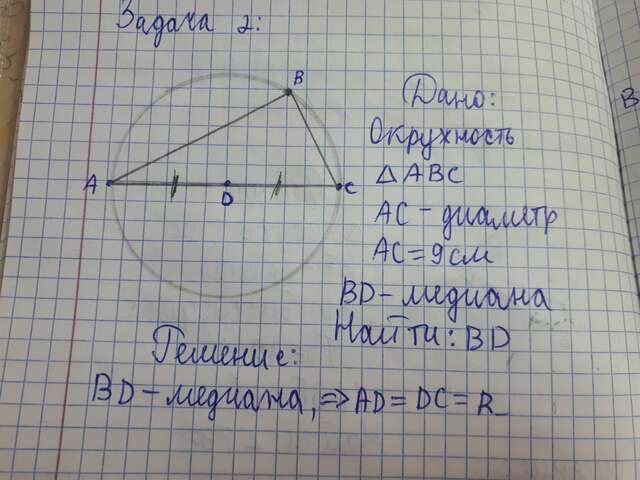 Задача 2:
B
A
D
C
Дано:
Окружность
△ABC
AC - диаметр
AC = 9 см
BD - медиана
Найти: BD
Решение:
BD - медиана, => AD = DC = R
B